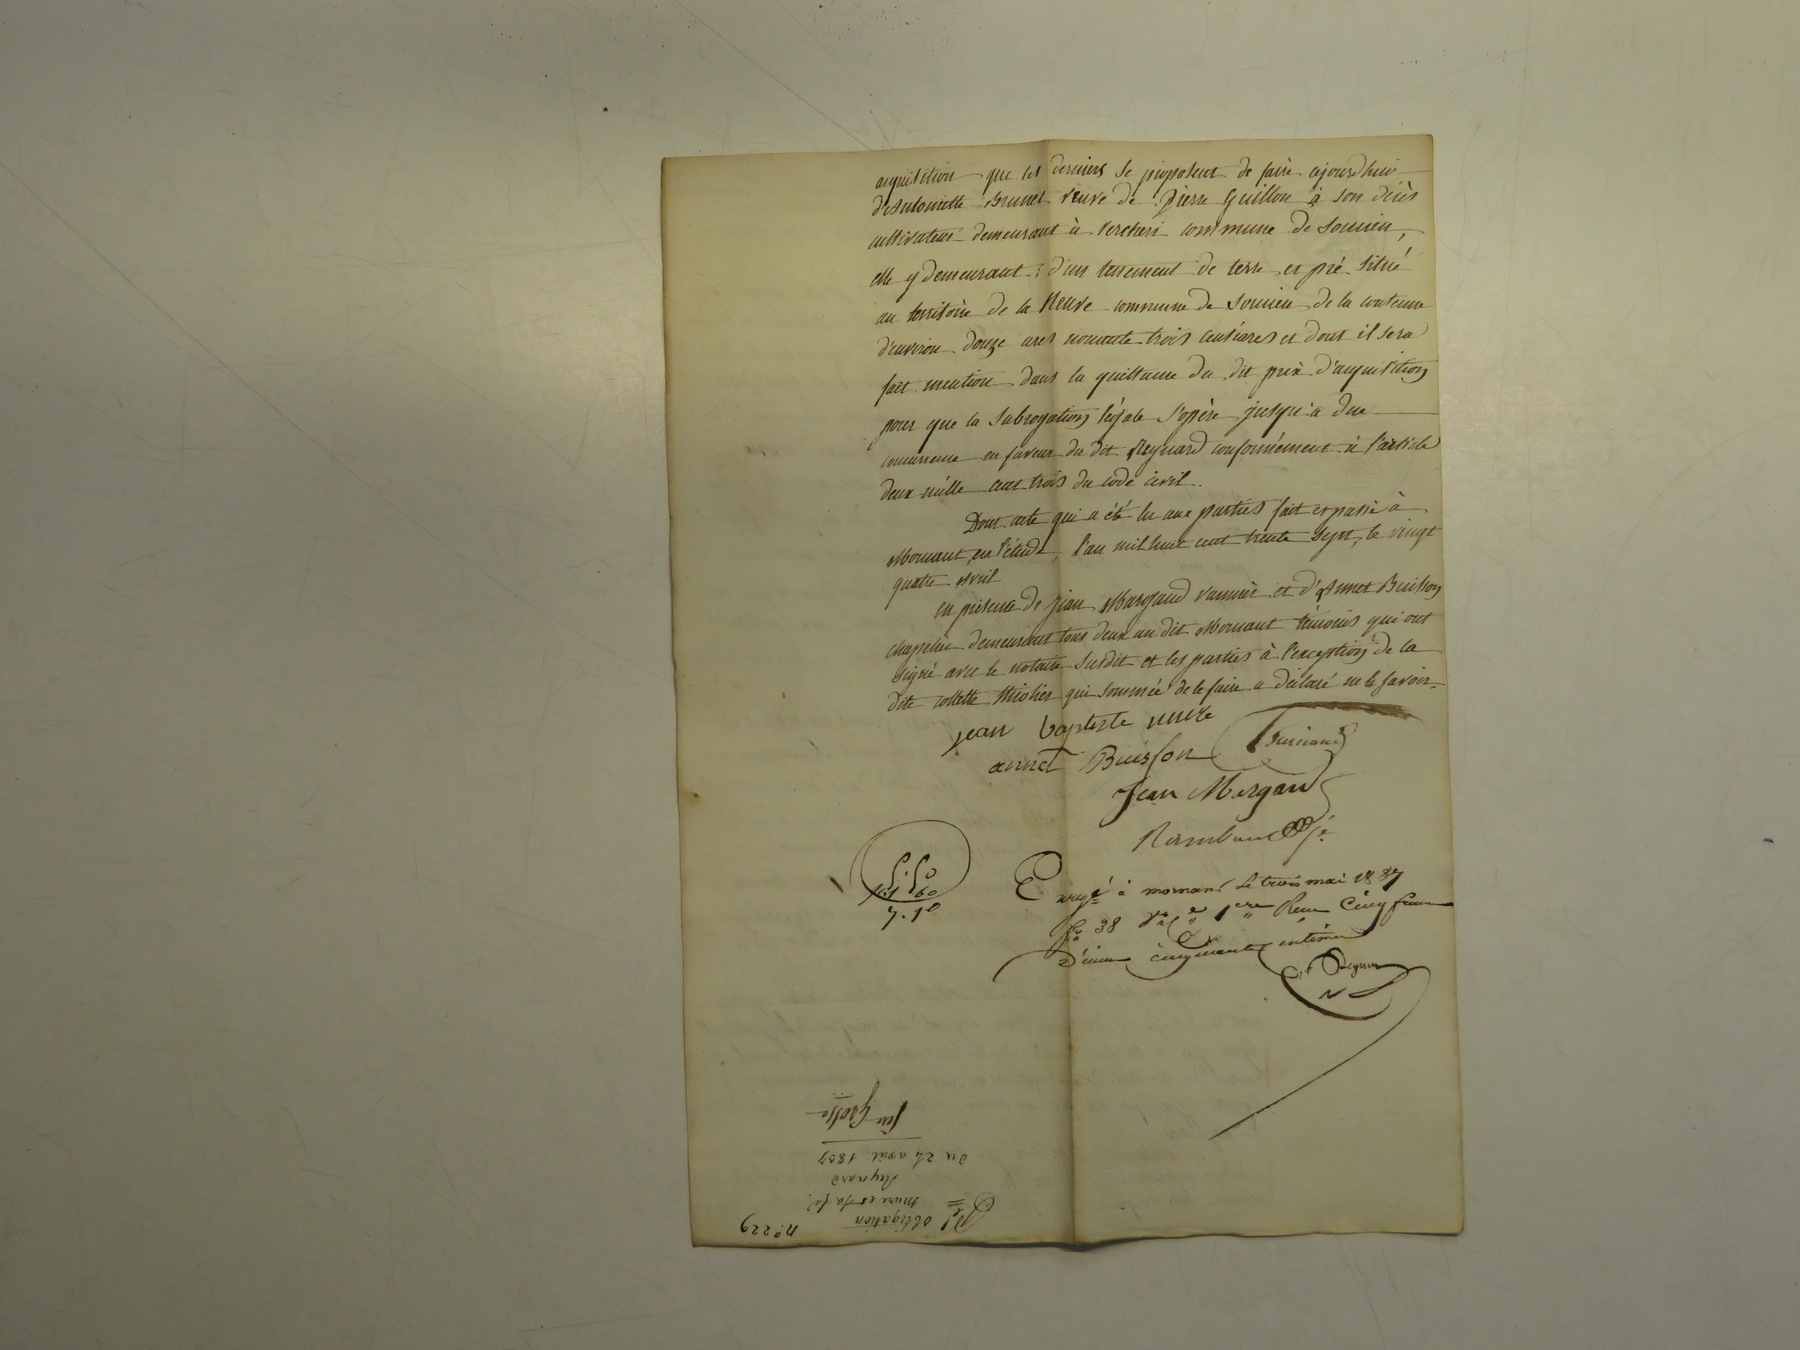 acquisition que les derniers se proposent de faire ajourdhui
d'Antoinette Brunet veuve de Pierre Guillon à son décès
cultivateur demeurant à Vercheri commune de Soucieu,
elle y demeurant; d'un tenement de terre et pré situé
au territoire de la Neuve commune de Soucieu de la contenue
d'environ douze ares nonante trois centiares et dont il sera
fait mention dans la quittance du dit prix d'acquisition
pour que la subrogation légale s'opère jusqu'à due
concurrence en faveur du dit Reynard conformément à l'article
deux mille cent trois du code civil.
Dont acte qui a été lu aux parties fait et passé à
Mornant, en l'étude, l'an mil huit cent trente sept, le vingt
quatre avril
en présence de Jean Margaud vannier et d'Annet Buisson
chapelier demeurant tous deux au dit Mornant témoins qui ont
signé avec le notaire susdit et les parties à l'exception de la
dite collette Thiolier qui sommée de le faire a déclaré ne le savoir.
jean baptiste mure
annet Buisson
Jean Margaud
Enregé à mornant le trois mai 1837
fo 38 Vo Ce 1ere Reçu Cinq francs
Décime cinquante centimes
5.50
1.60
7.10
No 229
Pel obligation
Mure et sa fe
Reynard
du 24 avril 1837
fee Grosse